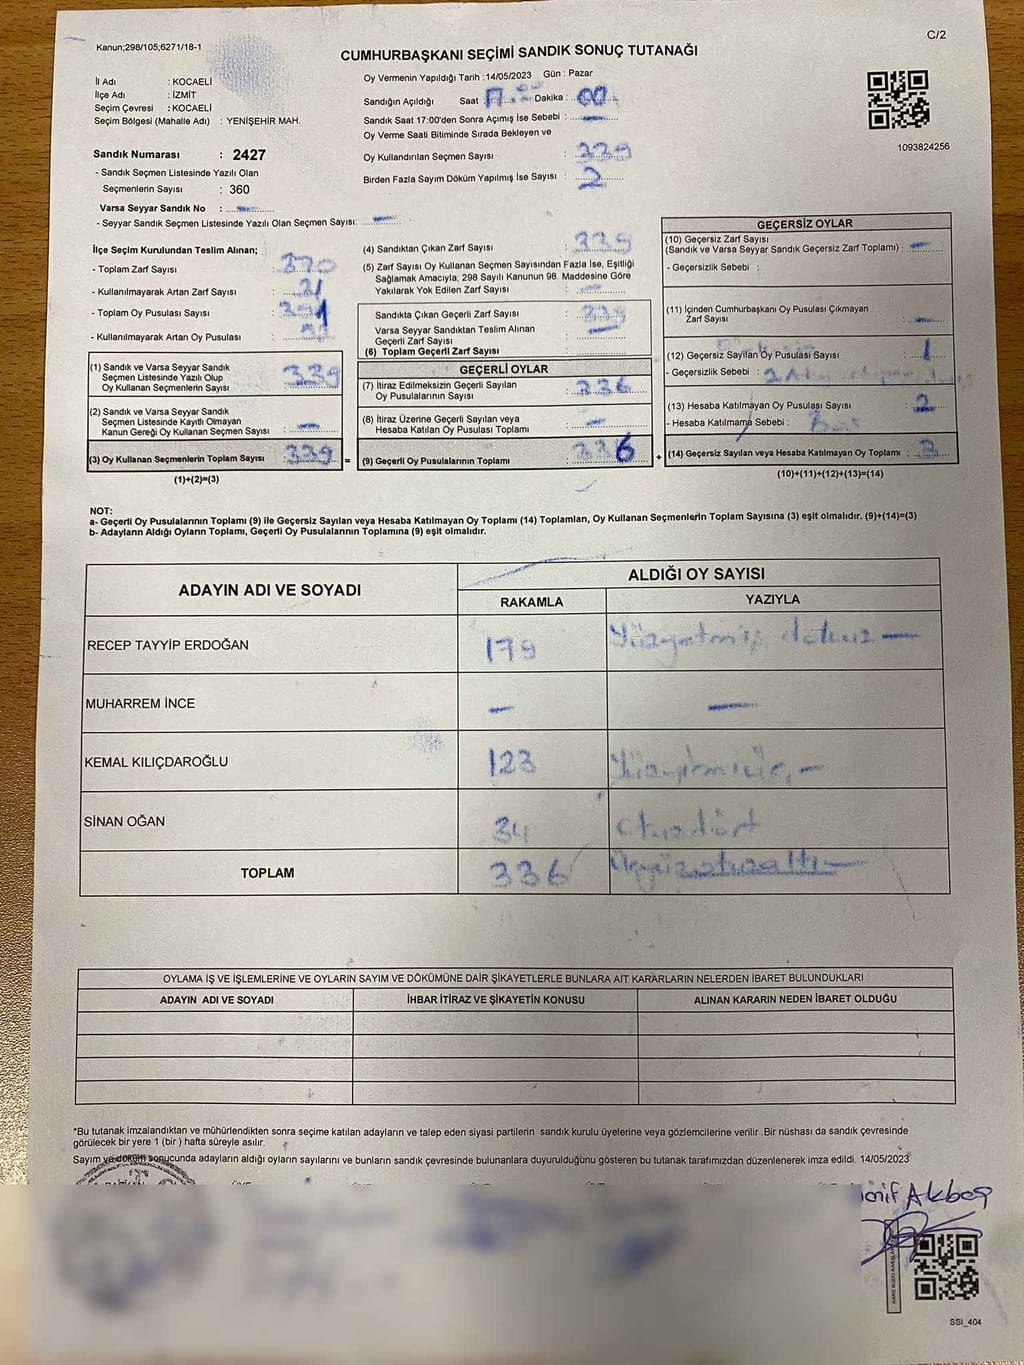 Kanun;298/105;6271/18-1
C/2
CUMHURBAŞKANI SEÇİMİ SANDIK SONUÇ TUTANAĞI
İl Adı : KOCAELİ
İlçe Adı : İZMİT
Seçim Çevresi : KOCAELİ
Seçim Bölgesi (Mahalle Adı) : YENİŞEHİR MAH.
Sandık Numarası : 2427
- Sandık Seçmen Listesinde Yazılı Olan
Seçmenlerin Sayısı : 360
Varsa Seyyar Sandık No : —
- Seyyar Sandık Seçmen Listesinde Yazılı Olan Seçmen Sayısı: —
Oy Vermenin Yapıldığı Tarih :14/05/2023 Gün : Pazar
Sandığın Açıldığı Saat : 17:00 Dakika : 00
Sandık Saat 17:00'den Sonra Açımış İse Sebebi : —
Oy Verme Saati Bitiminde Sırada Bekleyen ve
Oy Kullandırılan Seçmen Sayısı : 339
Birden Fazla Sayım Döküm Yapılmış İse Sayısı : 2
1093824256
İlçe Seçim Kurulundan Teslim Alınan;
- Toplam Zarf Sayısı : 370
- Kullanılmayarak Artan Zarf Sayısı : 31
- Toplam Oy Pusulası Sayısı :
- Kullanılmayarak Artan Oy Pusulası :
(1) Sandık ve Varsa Seyyar Sandık
Seçmen Listesinde Yazılı Olup
Oy Kullanan Seçmenlerin Sayısı : 339
(2) Sandık ve Varsa Seyyar Sandık
Seçmen Listesinde Kayıtlı Olmayan
Kanun Gereği Oy Kullanan Seçmen Sayısı : —
(3) Oy Kullanan Seçmenlerin Toplam Sayısı : 339
(1)+(2)=(3)
(4) Sandıktan Çıkan Zarf Sayısı : 339
(5) Zarf Sayısı Oy Kullanan Seçmen Sayısından Fazla İse, Eşitliği
Sağlamak Amacıyla; 298 Sayılı Kanunun 98. Maddesine Göre
Yakılarak Yok Edilen Zarf Sayısı : —
Sandıkta Çıkan Geçerli Zarf Sayısı : 339
Varsa Seyyar Sandıktan Teslim Alınan
Geçerli Zarf Sayısı : —
(6) Toplam Geçerli Zarf Sayısı
GEÇERLİ OYLAR
(7) İtiraz Edilmeksizin Geçerli Sayılan
Oy Pusulalarının Sayısı : 336
(8) İtiraz Üzerine Geçerli Sayılan veya
Hesaba Katılan Oy Pusulası Toplamı : —
= (9) Geçerli Oy Pusulalarının Toplamı : 336
GEÇERSİZ OYLAR
(10) Geçersiz Zarf Sayısı
(Sandık ve Varsa Seyyar Sandık Geçersiz Zarf Toplamı) : —
- Geçersizlik Sebebi :
(11) İçinden Cumhurbaşkanı Oy Pusulası Çıkmayan
Zarf Sayısı : —
(12) Geçersiz Sayılan Oy Pusulası Sayısı : 1
- Geçersizlik Sebebi :
(13) Hesaba Katılmayan Oy Pusulası Sayısı : 2
- Hesaba Katılmama Sebebi : Boş
+ (14) Geçersiz Sayılan veya Hesaba Katılmayan Oy Toplamı : 3
(10)+(11)+(12)+(13)=(14)
NOT:
a- Geçerli Oy Pusulalarının Toplamı (9) ile Geçersiz Sayılan veya Hesaba Katılmayan Oy Toplamı (14) Toplamları, Oy Kullanan Seçmenlerin Toplam Sayısına (3) eşit olmalıdır. (9)+(14)=(3)
b- Adayların Aldığı Oyların Toplamı, Geçerli Oy Pusulalarının Toplamına (9) eşit olmalıdır.
ADAYIN ADI VE SOYADI ALDIĞI OY SAYISI
RAKAMLA YAZIYLA
RECEP TAYYİP ERDOĞAN 179 Yüzyetmiş dokuz —
MUHARREM İNCE — —
KEMAL KILIÇDAROĞLU 123 Yüzyirmiüç —
SİNAN OĞAN 34 otuzdört
TOPLAM 336 Üçyüzotuzaltı —
OYLAMA İŞ VE İŞLEMLERİNE VE OYLARIN SAYIM VE DÖKÜMÜNE DAİR ŞİKAYETLERLE BUNLARA AİT KARARLARIN NELERDEN İBARET BULUNDUKLARI
ADAYIN ADI VE SOYADI İHBAR İTİRAZ VE ŞİKAYETİN KONUSU ALINAN KARARIN NEDEN İBARET OLDUĞU
*Bu tutanak imzalandıktan ve mühürlendikten sonra seçime katılan adayların ve talep eden siyasi partilerin sandık kurulu üyelerine veya gözlemcilerine verilir .Bir nüshası da sandık çevresinde
görülecek bir yere 1 (bir ) hafta süreyle asılır.
Sayım ve döküm sonucunda adayların aldığı oyların sayılarını ve bunların sandık çevresinde bulunanlara duyurulduğunu gösteren bu tutanak tarafımızdan düzenlenerek imza edildi. 14/05/2023
Akbaş
SSI_404